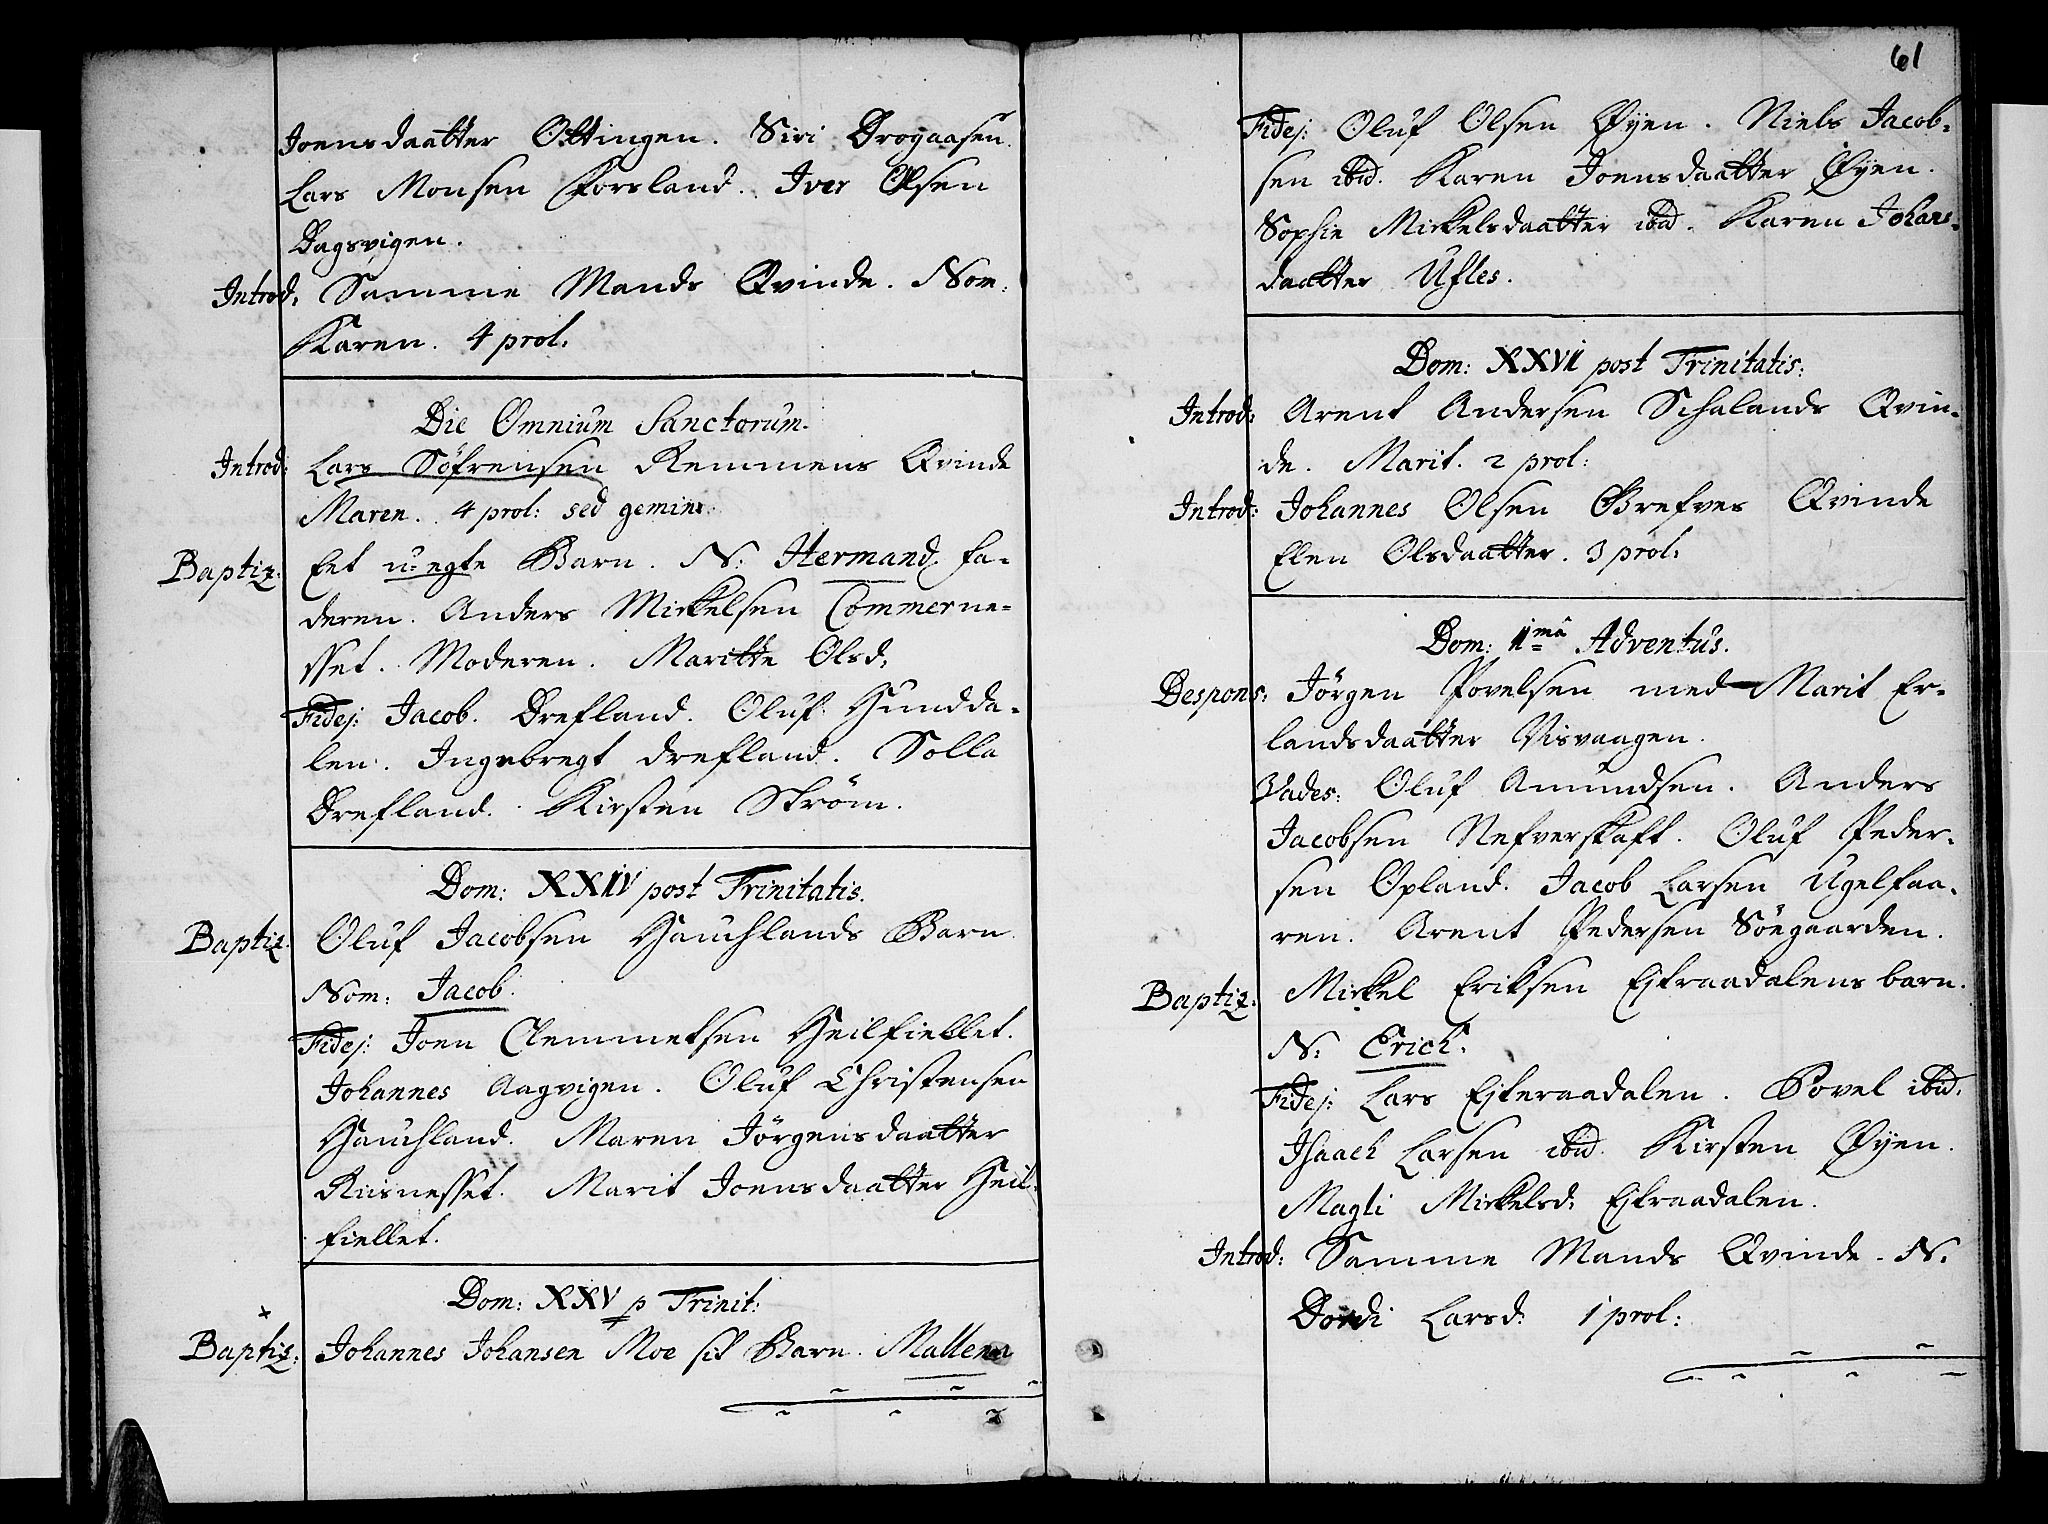 Joensdaatter Øttingen. Siri Drogaasen.
Lars Monsen Forsland. Iver Olsen
Dagsvigen.
Introd: Samme Mands Qvinde. Nom:
Karen. 4 prol:
Die Omnium Sanctorum.
Introd: Lars Søfrensen Remmens Qvinde
Maren. 4 prol: sed gemini.
Baptiz: Eet u-egte Barn. N: Hermand. Fa-
deren. Anders Mickelsen Tommerne-
sset. Moderen. Maritte Olsd:
Fidej: Jacob. Drefland. Oluf. Hundda-
len. Ingebregt Drefland. Solla
Drefland. Kirsten Strøm.
Dom: XXIV post Trinitatis.
Baptiz: Oluf Jacobsen Hauchlands Barn.
Nom: Jacob.
Fidej: Joen Clemmetsen Heilfiellet.
Johannes Aagvigen. Oluf Christensen
Hauchland. Maren Jørgensdaatter
Riisnesset. Marit Joensdaatter Heil-
fiellet.
Dom: XXV p Trinit:
Baptiz: Johannes Johansen Moe sit Barn. Mallena
61
Fidej: Oluf Olsen Øyen. Niels Jacob-
sen ibid. Karen Joensdaatter Øyen.
Sophie Mickelsdaatter ibid. Karen Johans-
daatter Ufles.
Dom: XXVI post Trinitatis:
Introd: Arent Andersen Schalands Qvin-
de. Marit. 2 prol:
Introd: Johannes Olsen Grefves Qvinde
Elen Olsdaatter. 3 prol:
Dom: 1mâ Adventus.
Despons: Jørgen Povelsen med Marit Er-
landsdaatter Visvaagen.
Vades: Oluf Amundsen. Anders
Jacobsen Nefverskaft. Oluf Peder-
sen Opland. Jacob Larsen Ugelfaa-
ren. Arent Pedersen Søegaarden.
Baptiz: Mickel Eriksen Ejteraadalens barn.
N: Erich.
Fidej: Lars Ejteraadalen. Povel ibid.
Isaach Larsen ibid. Kirsten Øyen.
Magli Mickelsd: Ejteraadalen.
Introd: Samme Mands Qvinde. N:
Dordi Larsd: 1 prol: